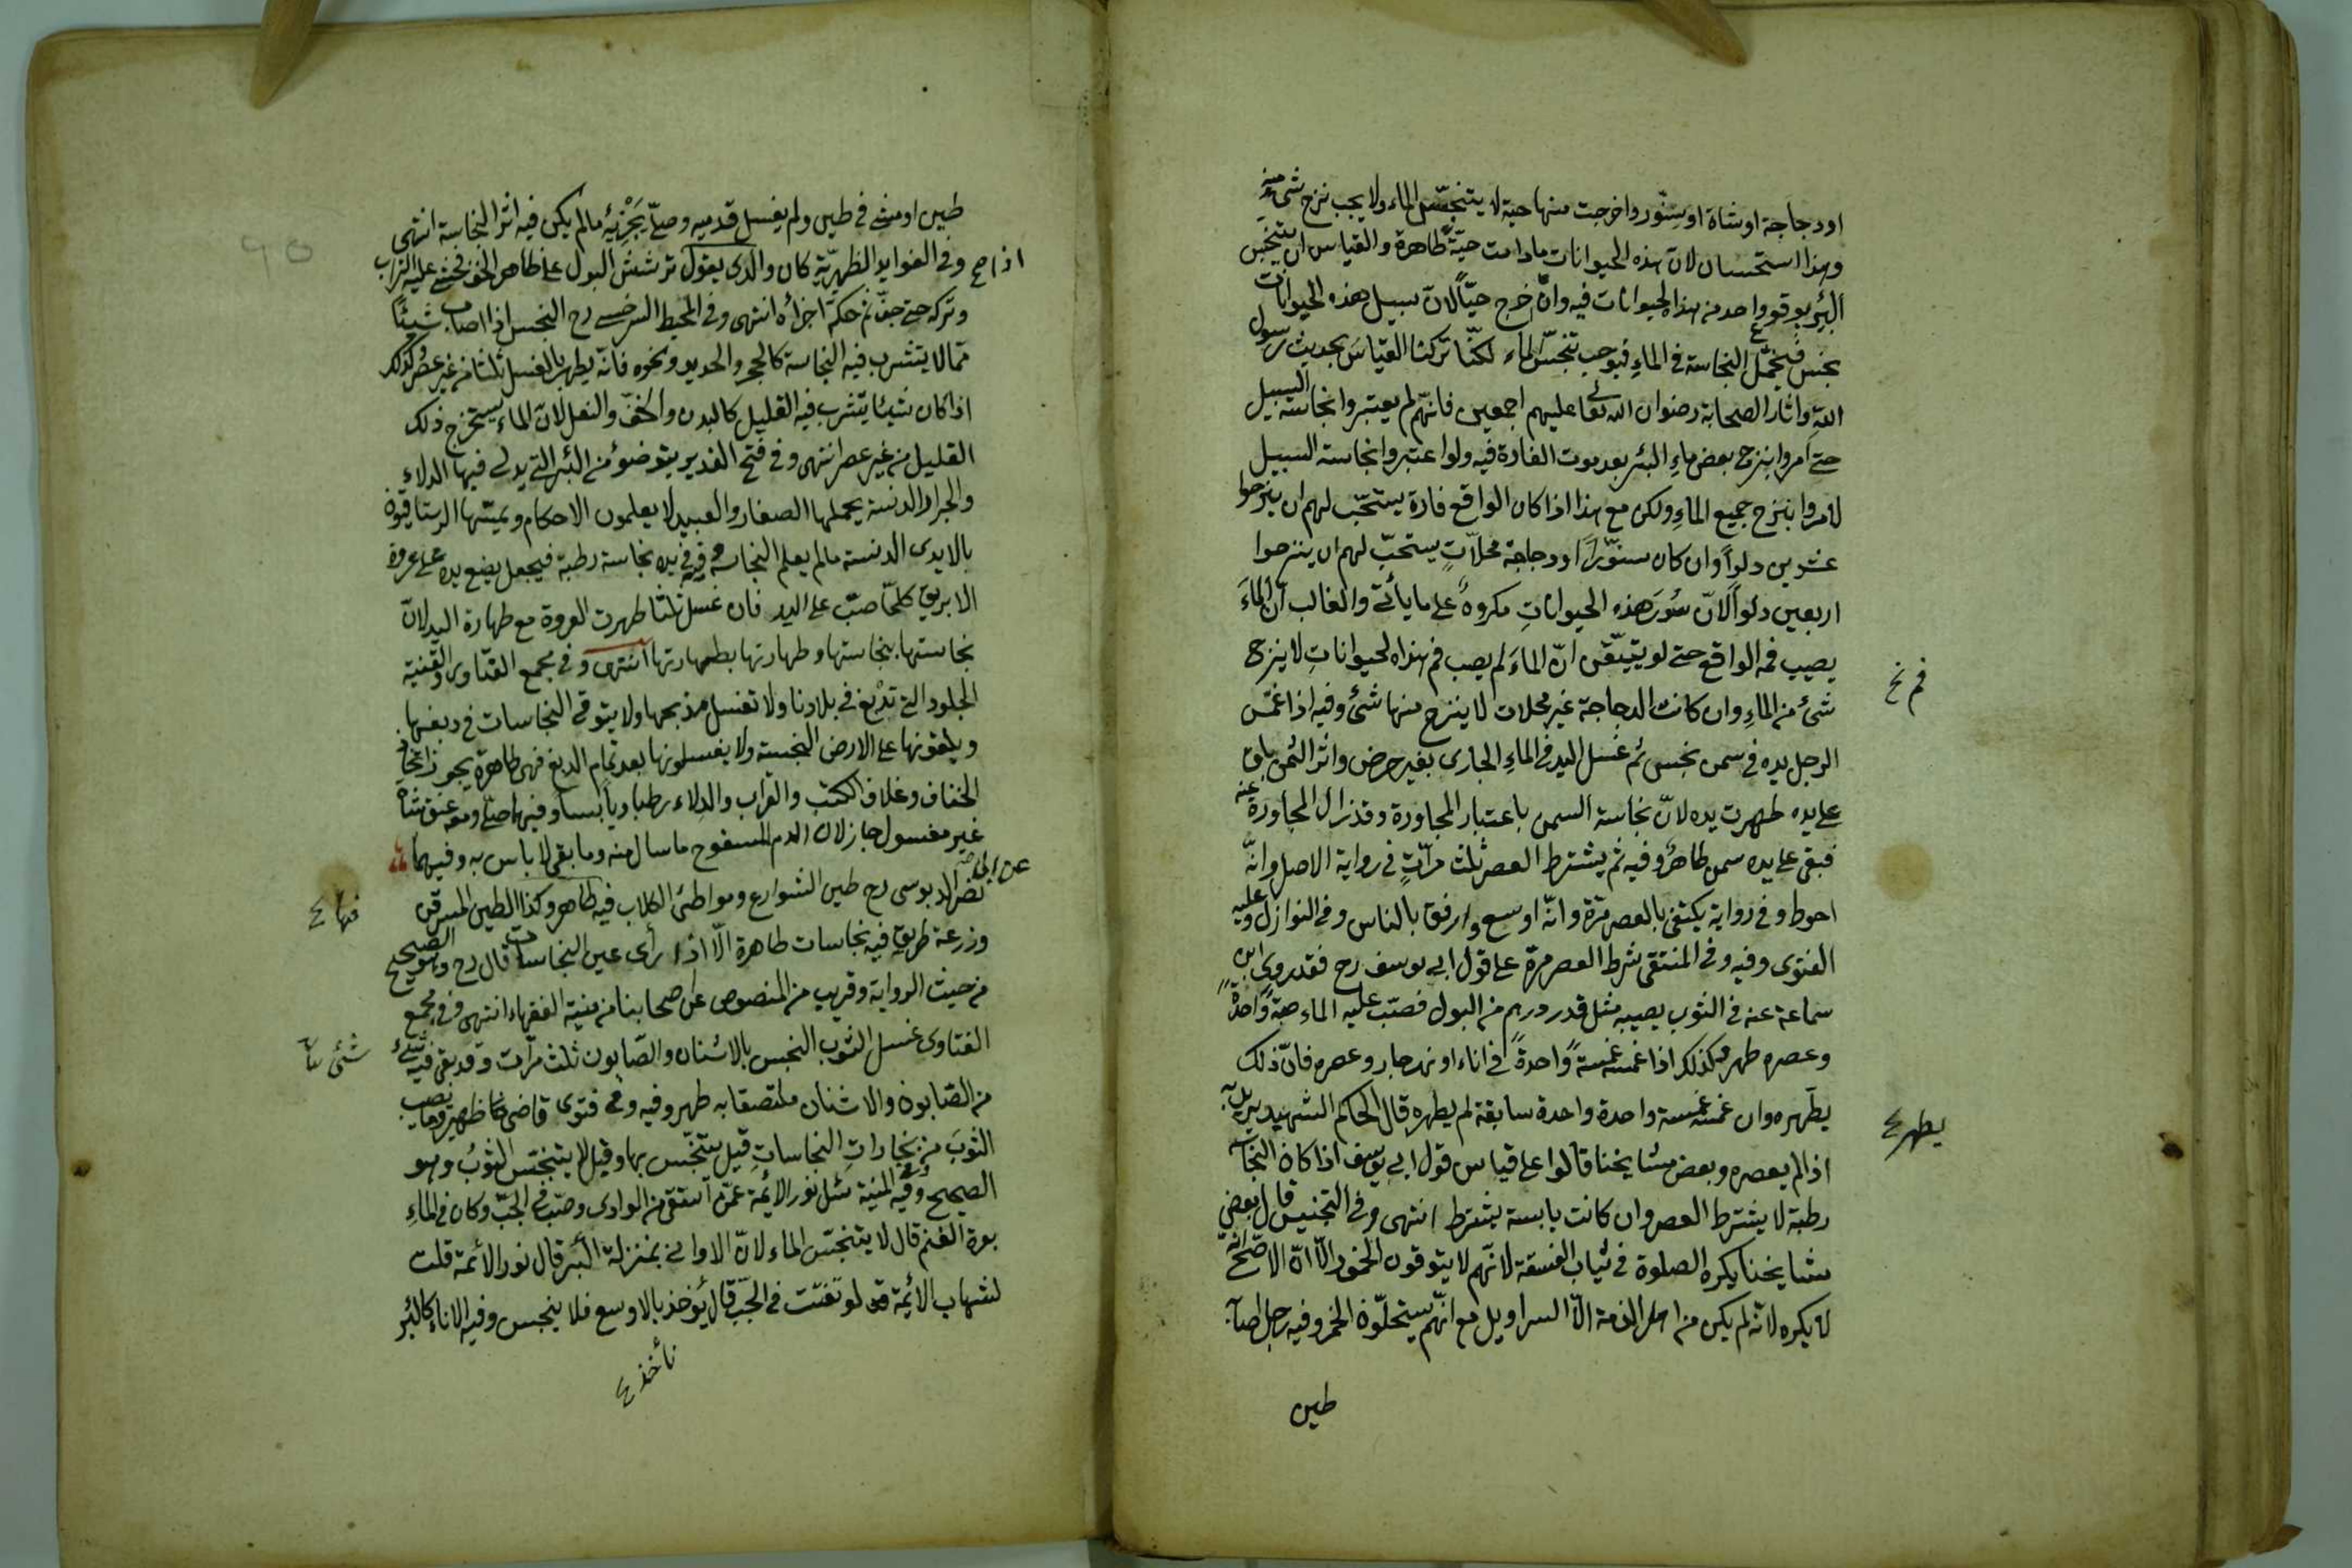 او دجاجة او شاة او سنّور واخرجت منها حية لا يتنجّس الماء ولا يجب نزح شئ منه
وهذا استحسان لانّ هذه الحيوانات مادامت حيّةً طاهرة والقياس ان يتنجّس
البئر بوقوع واحد من هذه الحيوانات فيه وان خرج حيّاً لانّ سبيل هذه الحيوانات
نجس فتحمّل النجاسة فى الماءِ فيوجب تنجّس الماء لكنّا تركنا القياسَ بحديث رسول
اللهِ واثار الصحابة رضوان الله تعالى عليهم اجمعين فانّهم لم يعتبروا نجاسة السبيل
حتى امروا بنزح بعض ماءِ البئر بعد موت الفارة فيه ولو اعتبروا نجاسة السبيل
لامروا بنزح جميع الماءِ ولكن مع هذا اذا كان الواقع فارة يستحّب لهم ان ينزحوا
عشرين دلواً وان كان سنّوراً او دجاجة مخلاّتٍ يستحبّ لهم ان ينزحوا
اربعين دلواً لانّ سُورَ هذه الحيواناتِ مكروهٌ على ما يأتى والغالب انّ الماءَ
يصيب فمه الواقع حتى لو يتيقّن انّ الماءَ لم يصب فم هذه الحيواناتِ لا ينزح
فم نخ
شئ من الماءِ وان كانت الدجاجة غير مخلات لا ينزح منها شئ وفيه اذا غمّس
الرجل يده فى سمن نجس ثم غسل اليد فى الماءِ الجارى بغير حرض واثر السمن باق
على يده طهرت يده لانّ نجاسة السمن باعتبار المجاورة وقد زال المجاورة عنه
فبقى على يده سمن طاهر وفيه ثم يشترط العصر ثلث مرّاتٍ فى رواية الاصل وانّه
احوط وفى رواية يكتفى بالعصر مرّة وانّه اوسع وارفق بالناس وفى النوازل وعليه
الفتوى وفيه وفى المنتقى شرط العصر مرة على قول ابى يوسف رح فقد روى ابن
سماعة عنه فى الثوب يصيبه مثل قدر درهم من البول فصبّ عليه الماء صبّةً واحدةً
وعصره طهر وكذلك اذا غمسه غمسةً واحدةً فى اناء او نهر جار وعصره فانّ ذلك
يطهّره وان غمسه غمسة واحدة واحدة سابقة لم يطهره قال الحاكم الشهيد يريد به
يطهر
اذا لم يعصره وبعض مشايخنا قالوا على قياس قول ابى يوسف اذا كان النجاسة
رطبة لا يشترط العصر وان كانت يابسة يشترط انتهى وفى التجنيس قال بعض
مشايخنا يكره الصلوة فى ثياب الفسقة لانّهم لا يتوقون الخمور الّا انّ الاصحّ انّه
لا يكره لانّه لم يكن من اهل الذمة الّا السراويل مع انّهم يستحلّون الخمر وفيه رجل اصابه
طين
طين او مشى فى طين ولم يغسل قدميه وصلّى يَجْزِيْه ما لم يكن فيه اثر النجاسة انتهى
وفى الفوايد الظهيريّة كان والدى يقول ترشش البول على ظاهر الخف فحثى عليه التراب
اذا صح
وتركه حتى جفّ ثم حكّه اجزأه انتهى وفى المحيط السرخسى رح النجس اذا اصاب شيئًا
ممّا لا يتشرب فيه النجاسة كالحجر والحديد ونحوه فانّه يطهر بالغسل ثلثا من غير عصر وكذلك
اذا كان شيئا يتشرب فيه القليل كالبدن والخفّ والنعل لانّ الماءَ يستخرج ذلك
القليل من غير عصر انتهى وفى فتح القدير يتوضؤ من البئر التى يدلى فيها الدلاء
والجرار الدنسة يحملها الصغار والعبيد لا يعلمون الاحكام ويمسّها الرستاقيون
بالايدى الدنسة ما لم يعلم النجاسة فى يده نجاسة رطبة فيجعل يضع يده على عروة
الابريق كلّما صبّ على اليد فان غسل ثلثا طهرت العروة مع طهارة اليد لانّ
نجاستها بنجاستها وطهارتها بطهارتها انتهى وفى مجمع الفتاوى والقنية
الجلود التى تدبغ فى بلادنا ولا تغسل مذبحها ولا يتوقى النجاسات فى دبغها
ويلقونها على الارض النجسة ولا يغسلونها بعد تمام الدبغ فهى طاهرة يجوز اتخاذ
الخفاف وغلاف الكتب والقراب والدلاء رطبا ويابسا وفيهما صلّى ومعه عنق شاة
غير مغسول جاز لان الدم المسفوح ما سال منه وما بقى لا باس به وفيهما
عن ابى
نصر الدبوسى رح طين الشوارع ومواطئ الكلاب فيه طاهر وكذا الطين المسرقن
فيها
وزرعة طريق فيه نجاسات طاهرة الّا اذا رأى عين النجاسات قال رح وهو الصحيح
من حيث الرواية وقريب من المنصوص عن اصحابنا من منية الفقهاء انتهى وفى مجمع
الفتاوى غسل الثوب النجس بالاشنان والصّابون ثلث مرّات وقد بقى فيه شئ
شئ
من الصّابون والاشنان ملتصقا به طهر وفيه وفى فتوى قاضى ظهير وما يصيب
الثوبَ من بخاراتِ النجاساتِ قيل يتنجّس بها وقيل لا يتنجّس الثوبُ وهو
الصحيح وفى المنية سئل نور الائمة عمّن استقى من الوادى وصبّ فى الجبّ وكان فى الماءِ
بعرة الغنم قال لا يتنجّس الماء لانّ الاوانى بمنزلة البئر قال نور الائمة قلت
لشهاب الائمة لو تفتّت فى الجبّ قال يؤخذ بالاوسع فلا ينجس وفيه الاناء كالبئر
نأخذ